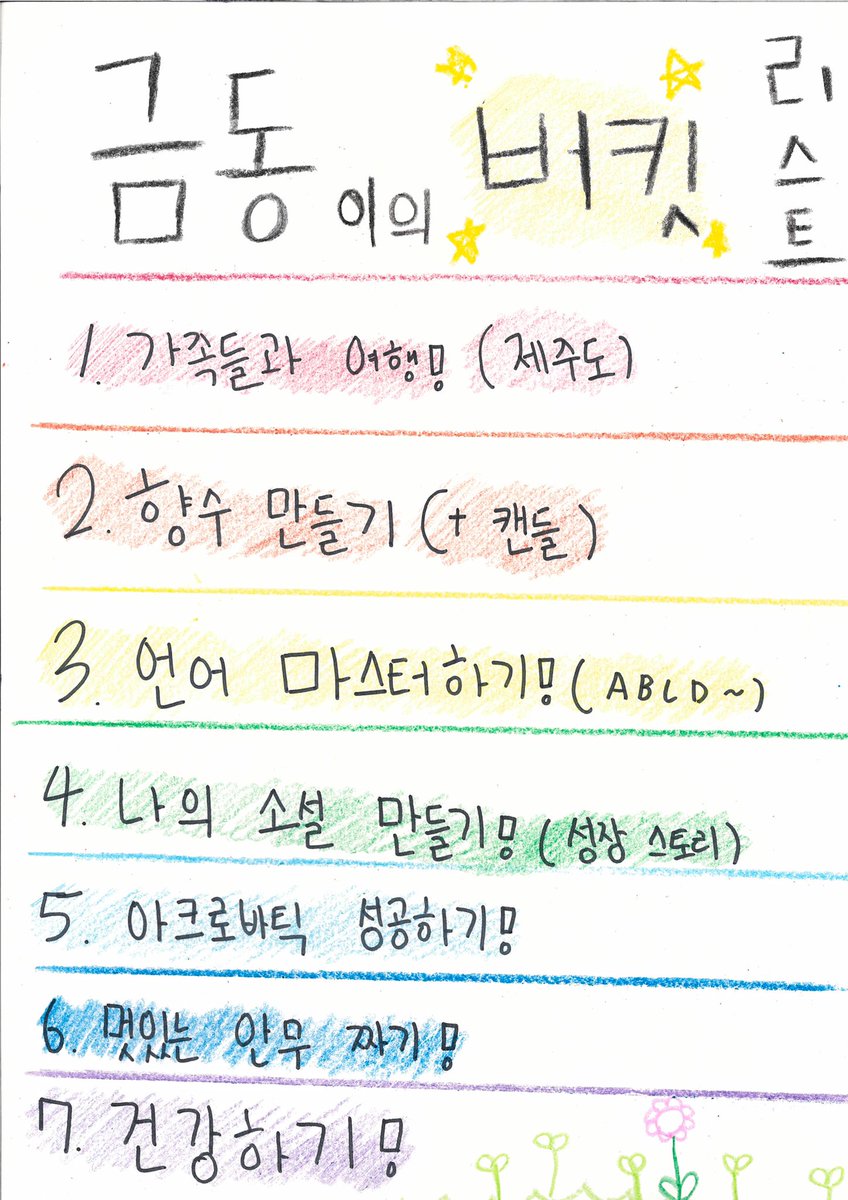 금동이의 버킷리스트
1. 가족들과 여행! (제주도)
2. 향수 만들기 (+ 캔들)
3. 언어 마스터하기! (ABCD~)
4. 나의 소설 만들기! (성장 스토리)
5. 아크로바틱 성공하기!
6. 멋있는 안무 짜기!
7. 건강하기!